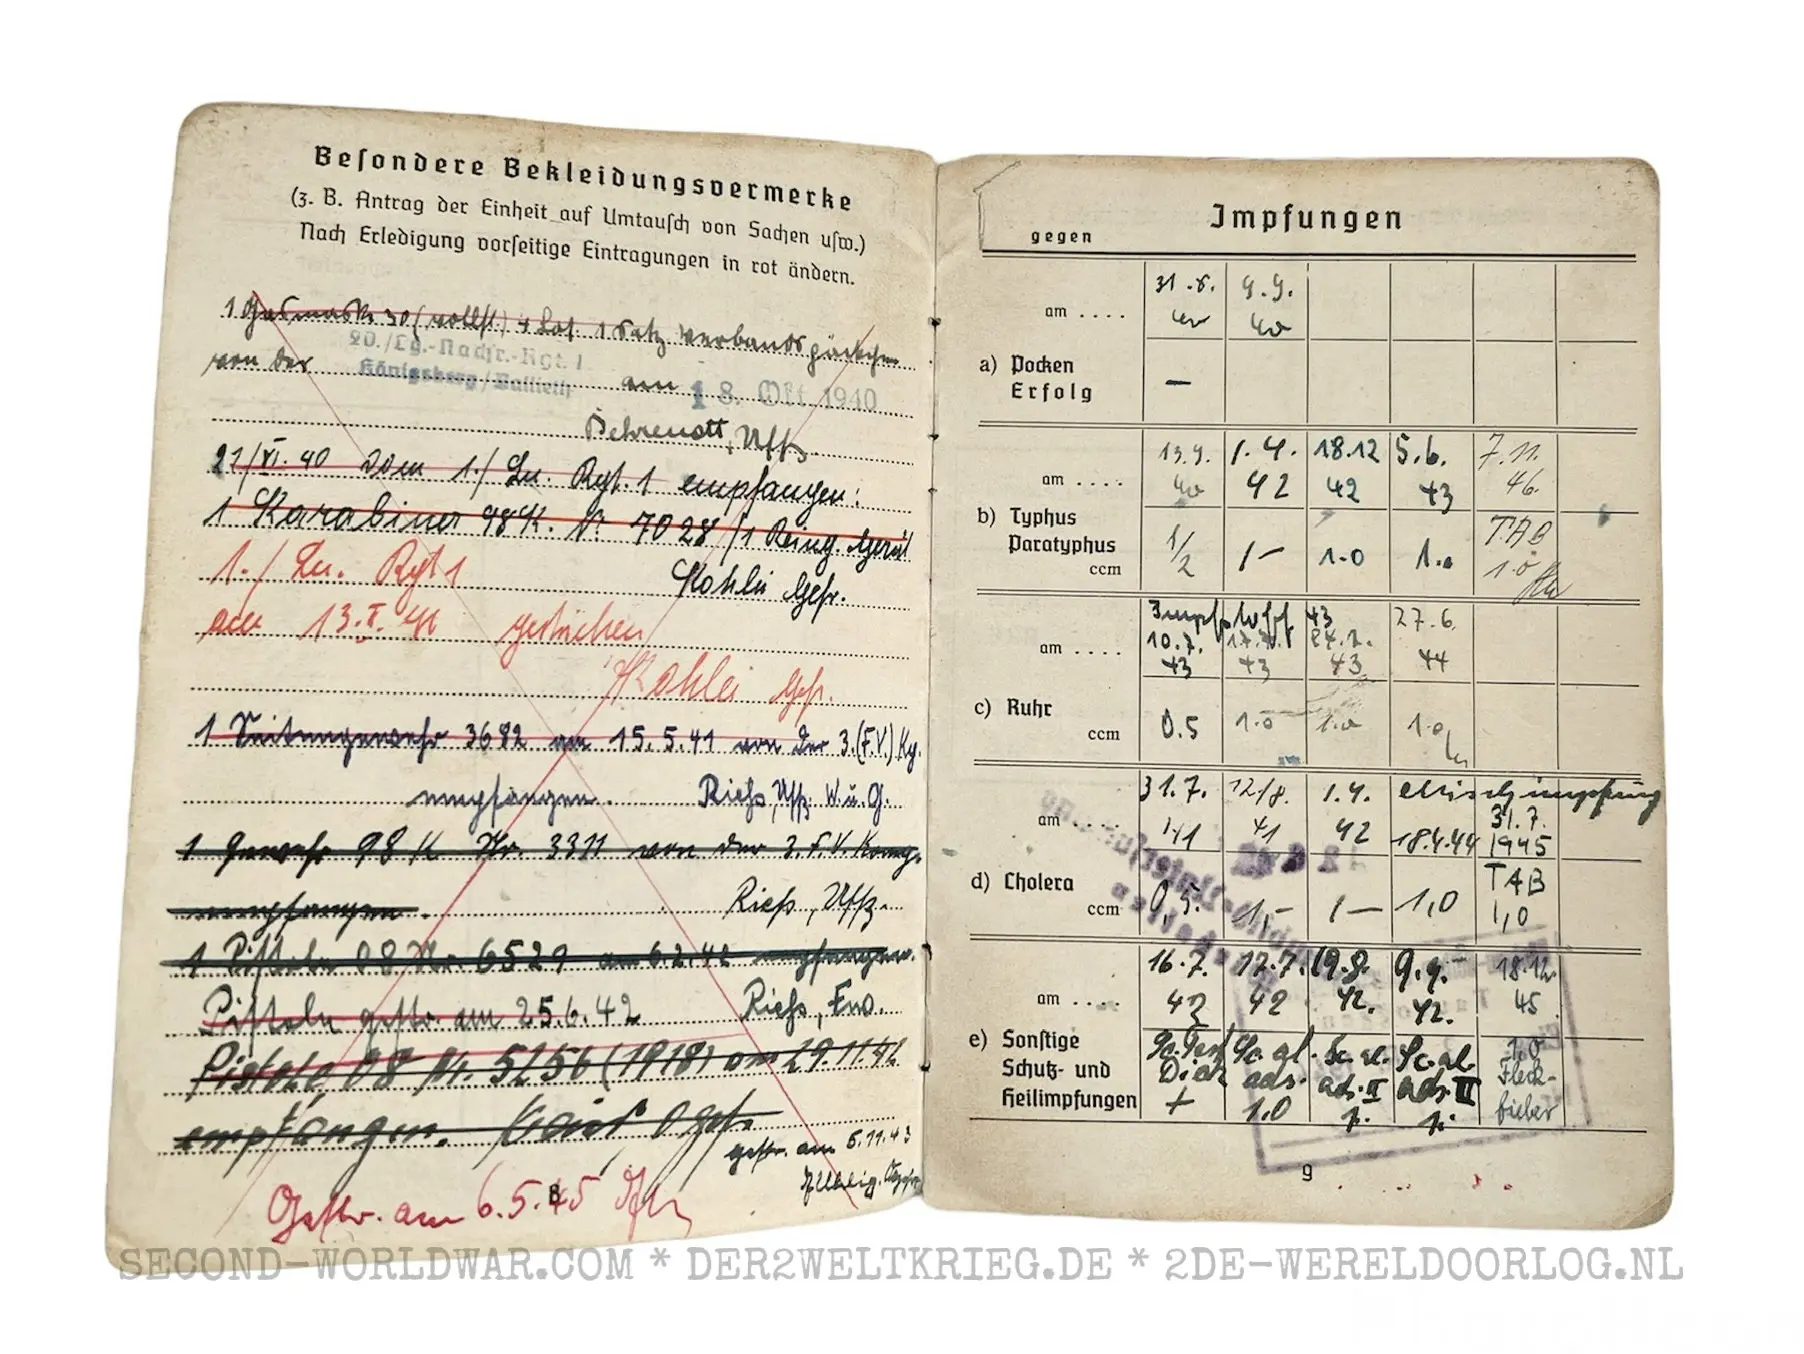 Besondere Bekleidungsvermerke
(z. B. Antrag der Einheit auf Umtausch von Sachen usw.)
Nach Erledigung vorseitige Eintragungen in rot ändern.
1 Gasmaske 30 (vollst.) 1 Satz Verbandspäckchen
von der 20./Lg.-Nachr.-Rgt. 1
Königsberg/Ballieth am 18. Okt. 1940
Uffz.
21/VI. 40 vom 1./Ln. Rgt. 1 empfangen:
1 Karabiner 98K. Nr 7028 / 1 Reing. Gerät
1./Ln. Rgt 1 Kohlei Gefr.
am 13. gestrichen
Kohlei Gefr.
1 Seitengewehr 3682 am 15.5.41 von der 3.(F.V.) Kp.
empfangen. Rieß, Uffz. W.u.G.
1 Gewehr 98 K Nr. 3311 von der 3. F.V. Komp.
empfangen. Rieß, Uffz.
1 Pistole 08 Nr. 6529 am 6.2.42 empfangen.
Pistole gestr. am 25.6.42 Rieß, Fw.
Pistole 08 Nr. 5256 (1918) am 29.11.42
empfangen. Ogefr.
gestr. am 6.11.43
Gestr. am 6.5.45
8
Impfungen
gegen
am .... 31.8. 40 9.9. 40
a) Pocken
Erfolg —
am .... 13.9. 40 1.4. 42 18.12 42 5.6. 43 7.11. 46.
b) Typhus
Paratyphus
ccm 1/2 1- 1.0 1.0 TAB 1.0
am .... 10.7. 43 17.7. 43 24.7. 43 27.6. 44
c) Ruhr
ccm 0.5 1.0 1.0 1.0
am .... 31.7. 41 12/8. 41 1.4. 42 Mischimpfung 18.4.44 31.7. 1945
d) Cholera
ccm 0,5. 1,- 1- 1,0 TAB 1,0
am .... 16.7. 42 17.7. 42 19.8. 42. 9.9. 42. 18.12. 45
e) Sonstige
Schutz- und
Heilimpfungen + 1.0 1,0 Fleckfieber
9
SECOND-WORLDWAR.COM * DER2WELTKRIEG.DE * 2DE-WERELDOORLOG.NL